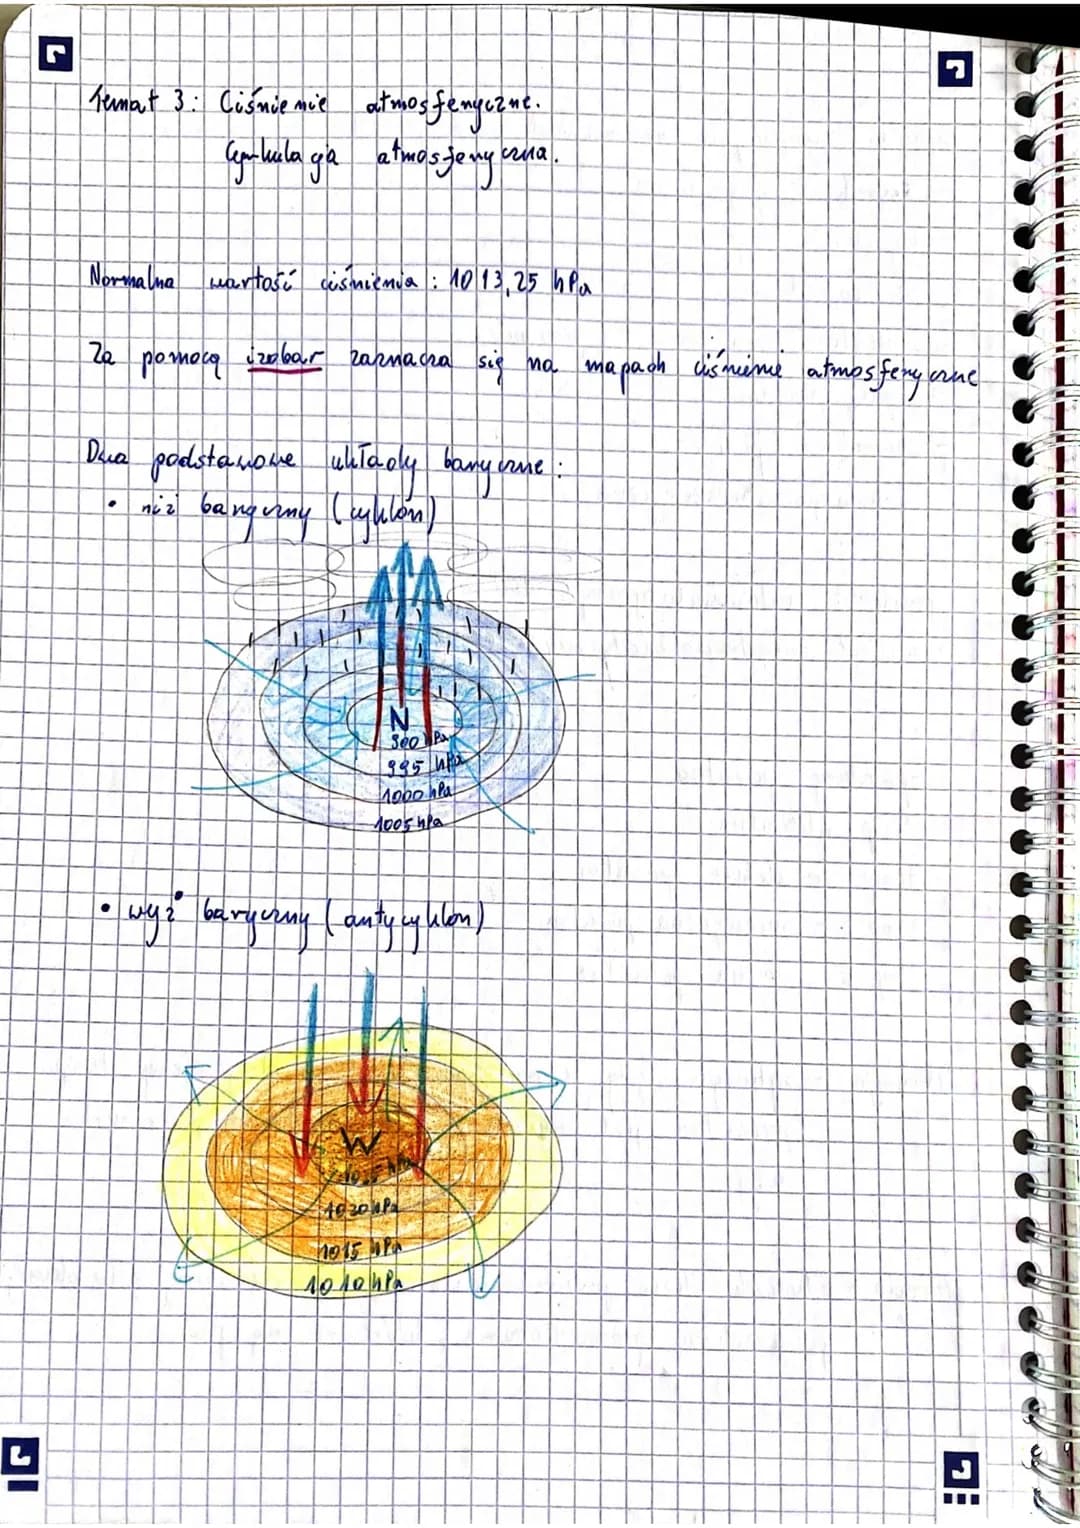 Temat 3: Ciśnienie atmosferyczne.
Cyrkulacja atmosferyczna.
Normalna wartość ciśnienia: 1013,25 hPa
Za pomocą izobar zaznacza się na mapach ciśnienie atmosferyczne
Dwa podstawowe układy baryczne:
• niż baryczny (cyklon)
N
990 hPa
995 hPa
1000 hPa
1005 hPa
• wyż baryczny (antycyklon)
W
hPa
1020 hPa
1015 hPa
1010 hPa